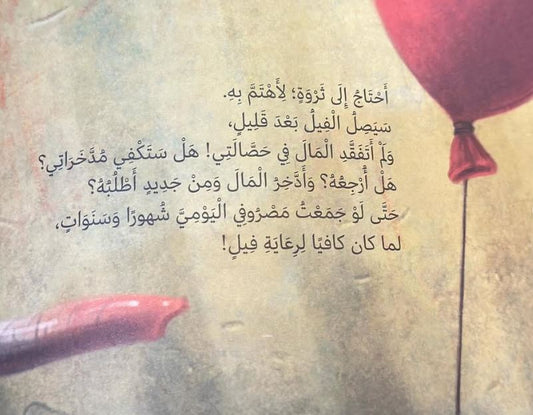 أَحْتَاجُ إِلَى ثَرْوَةٍ؛ لِأَهْتَمَّ بِهِ.
سَيَصِلُ الْفِيلُ بَعْدَ قَلِيلٍ،
وَلَمْ أَتَفَقَّدِ الْمَالَ فِي حَصَّالَتِي! هَلْ سَتَكْفِي مُدَّخَرَاتِي؟
هَلْ أُرْجِعُهُ؟ وَأَدَّخِرُ الْمَالَ وَمِنْ جَدِيدٍ أَطْلُبُهُ؟
حَتَّى لَوْ جَمَعْتُ مَصْرُوفِي الْيَوْمِيَّ شُهورًا وَسَنَوَاتٍ،
لما كان كافيًا لِرِعَايَةِ فِيلٍ!